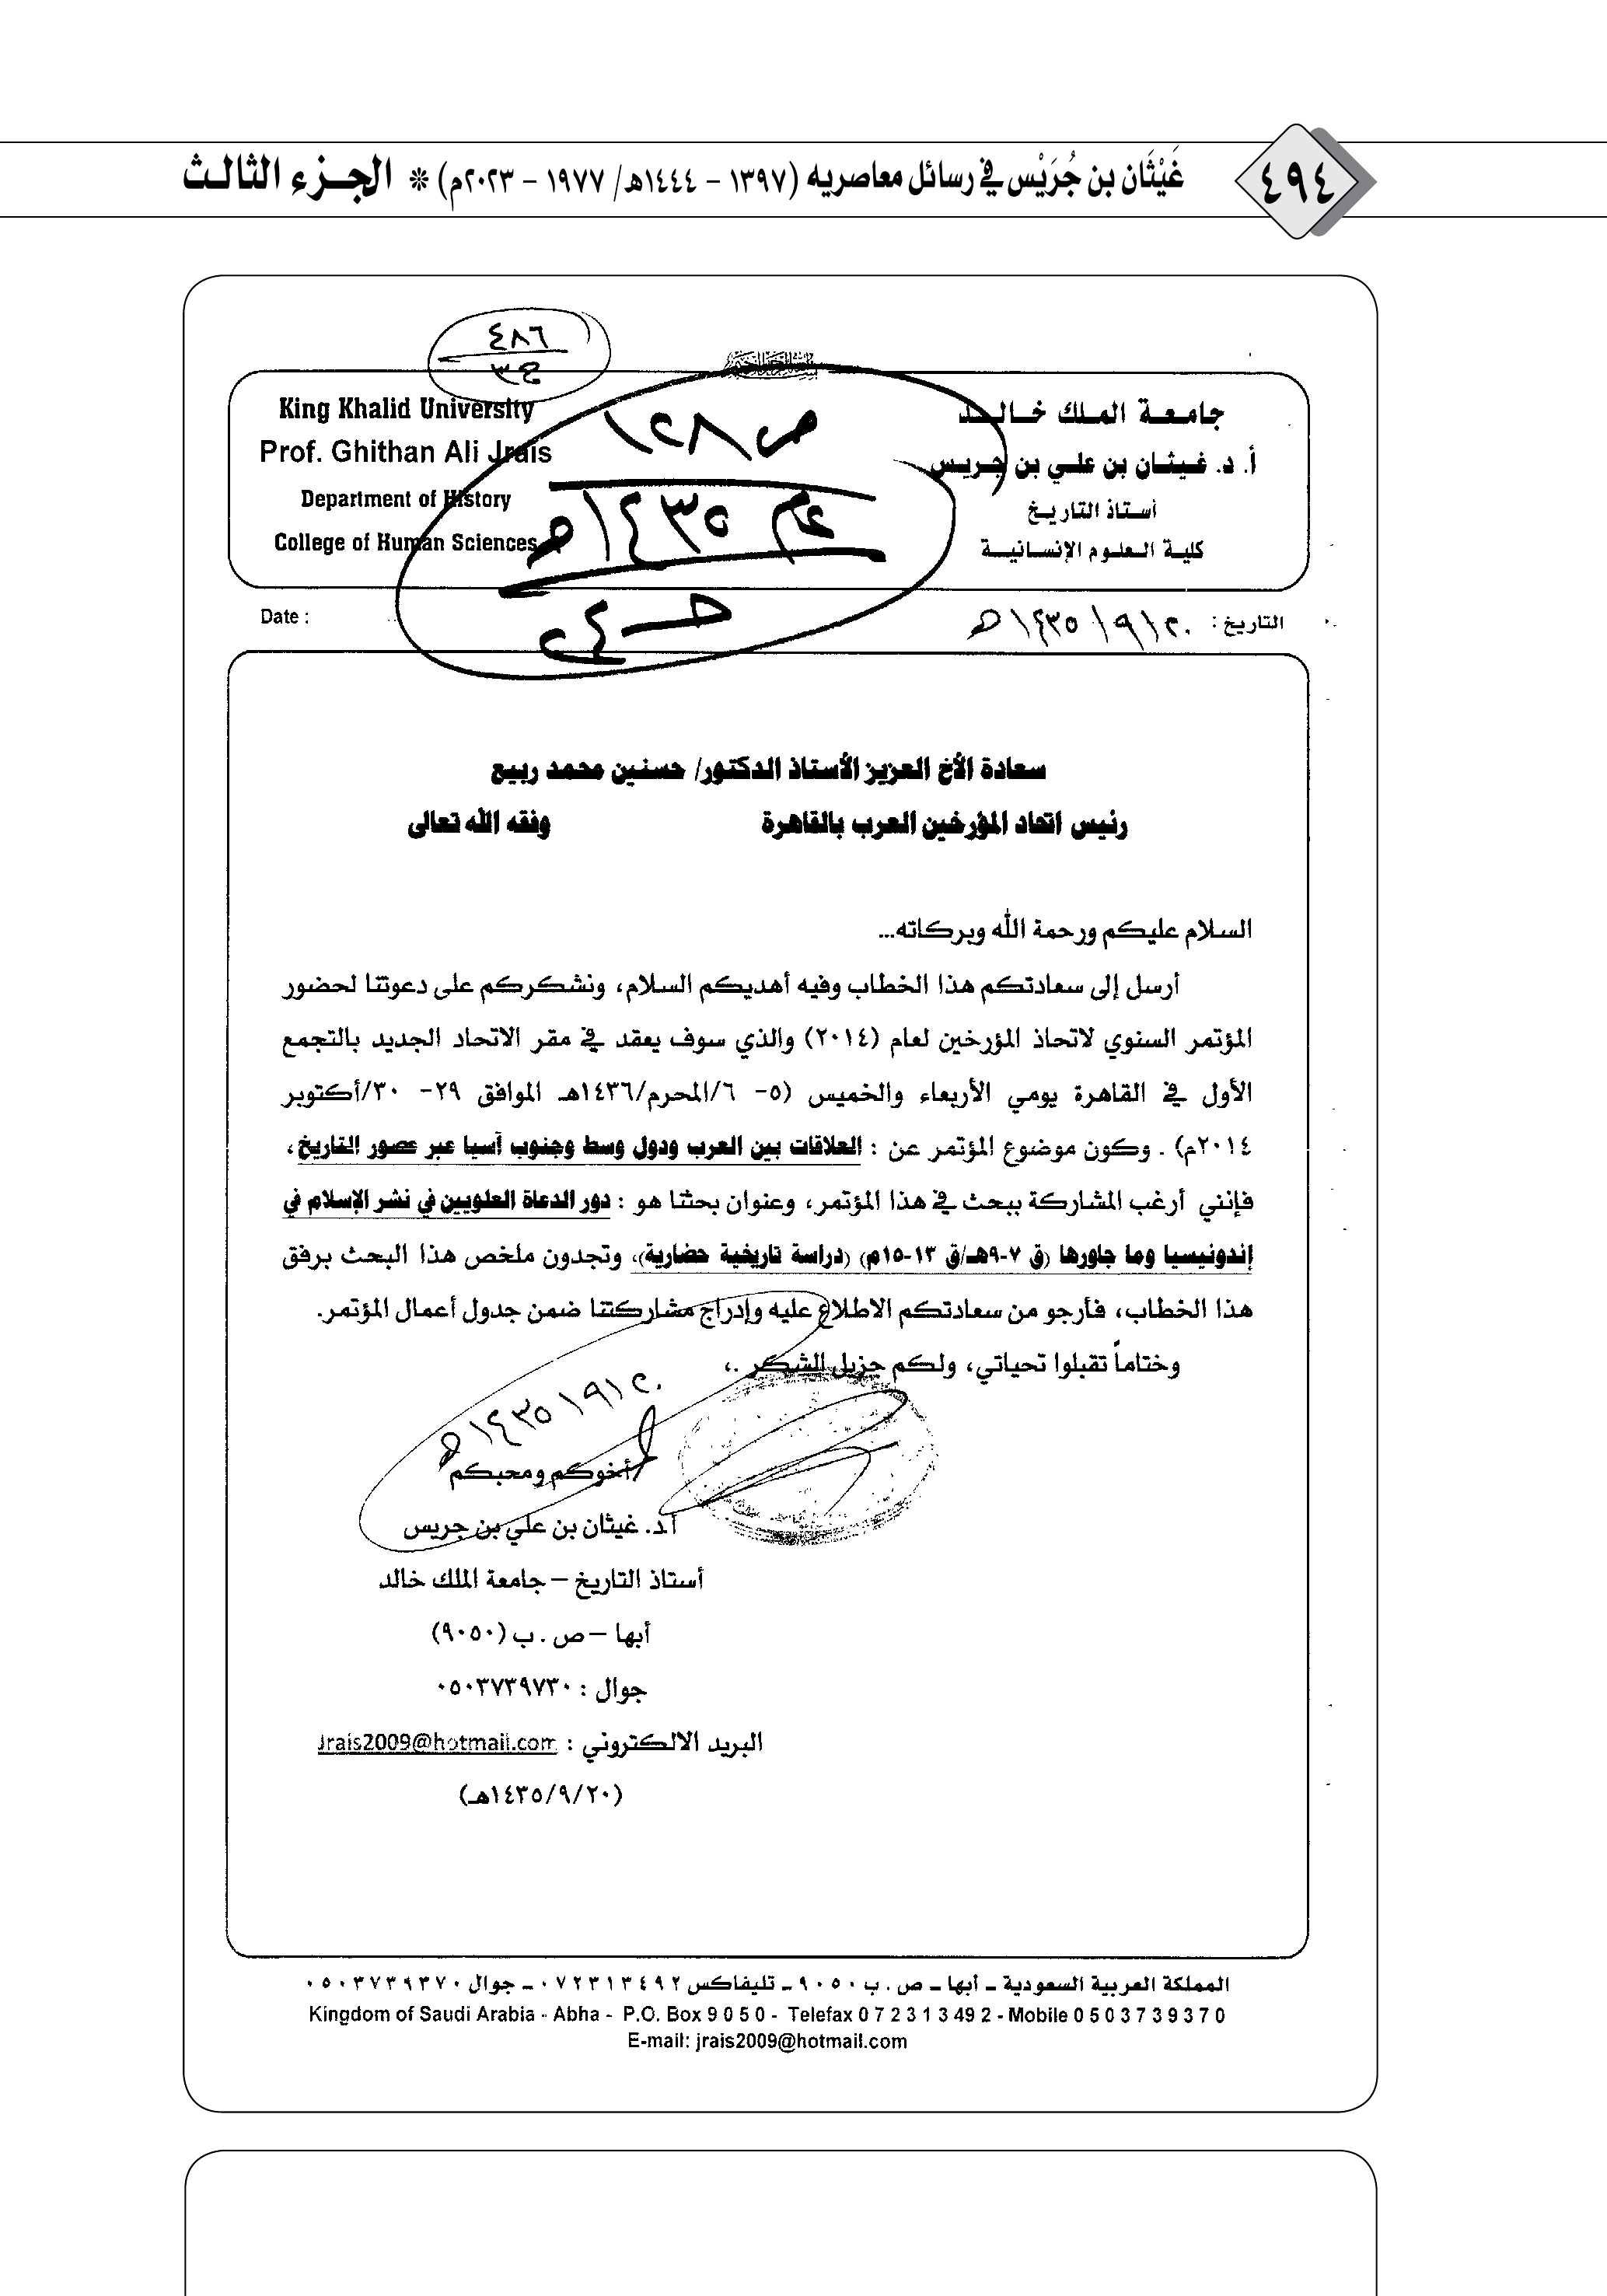 ٤٩٤
غَيْثَان بن جُرَيْس في رسائل معاصريه (١٣٩٧ - ١٤٤٤هـ/ ١٩٧٧ - ٢٠٢٣م) * الجزء الثالث
٤٨٦
ج٣
جامعة الملك خالد
أ. د. غيثان بن علي بن جريس
أستاذ التاريخ
كلية العلوم الإنسانية
King Khalid University
Prof. Ghithan Ali Jrais
Department of History
College of Human Sciences
ص١٢٨
عام ١٤٣٥هـ
التاريخ : ٢٠/٩/١٤٣٥هـ
Date :
سعادة الأخ العزيز الأستاذ الدكتور/ حسنين محمد ربيع
رئيس اتحاد المؤرخين العرب بالقاهرة وفقه الله تعالى
السلام عليكم ورحمة الله وبركاته...
أرسل إلى سعادتكم هذا الخطاب وفيه أهديكم السلام، ونشكركم على دعوتنا لحضور
المؤتمر السنوي لاتحاذ المؤرخين لعام (٢٠١٤) والذي سوف يعقد في مقر الاتحاد الجديد بالتجمع
الأول في القاهرة يومي الأربعاء والخميس (٥- ٦/المحرم/١٤٣٦هـ الموافق ٢٩- ٣٠/أكتوبر
٢٠١٤م) . وكون موضوع المؤتمر عن : العلاقات بين العرب ودول وسط وجنوب أسيا عبر عصور التاريخ ،
فإنني أرغب المشاركة ببحث في هذا المؤتمر، وعنوان بحثنا هو : دور الدعاة العلويين في نشر الإسلام في
إندونيسيا وما جاورها (ق ٧-٩هـ/ق ١٣-١٥م) (دراسة تاريخية حضارية)، وتجدون ملخص هذا البحث برفق
هذا الخطاب، فأرجو من سعادتكم الاطلاع عليه وإدراج مشاركتنا ضمن جدول أعمال المؤتمر.
وختاماً تقبلوا تحياتي، ولكم جزيل الشكر .،
٢٠/٩/١٤٣٥هـ
أخوكم ومحبكم
أ.د. غيثان بن علي بن جريس
أستاذ التاريخ – جامعة الملك خالد
أبها – ص . ب (٩٠٥٠)
جوال : ٠٥٠٣٧٣٩٧٣٠
البريد الالكتروني : Jrais2009@hotmail.com
(١٤٣٥/٩/٢٠هـ)
المملكة العربية السعودية ـ أبها ـ ص . ب ٩٠٥٠ ـ تليفاكس ٠٧٢٣١٣٤٩٢ ـ جوال ٠٥٠٣٧٣٩٣٧٠
Kingdom of Saudi Arabia - Abha - P.O. Box 9 0 5 0 - Telefax 0 7 2 3 1 3 49 2 - Mobile 0 5 0 3 7 3 9 3 7 0
E-mail: jrais2009@hotmail.com